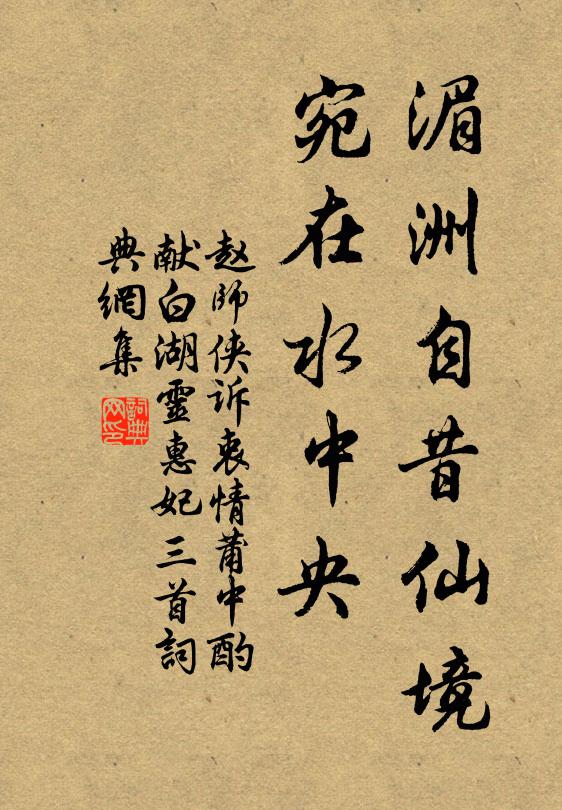 湄洲自昔仙境
宛在水中央
赵師侠诉衷情莆中酌
献白湖靈惠妃三首詞
典網集
詞典
网印